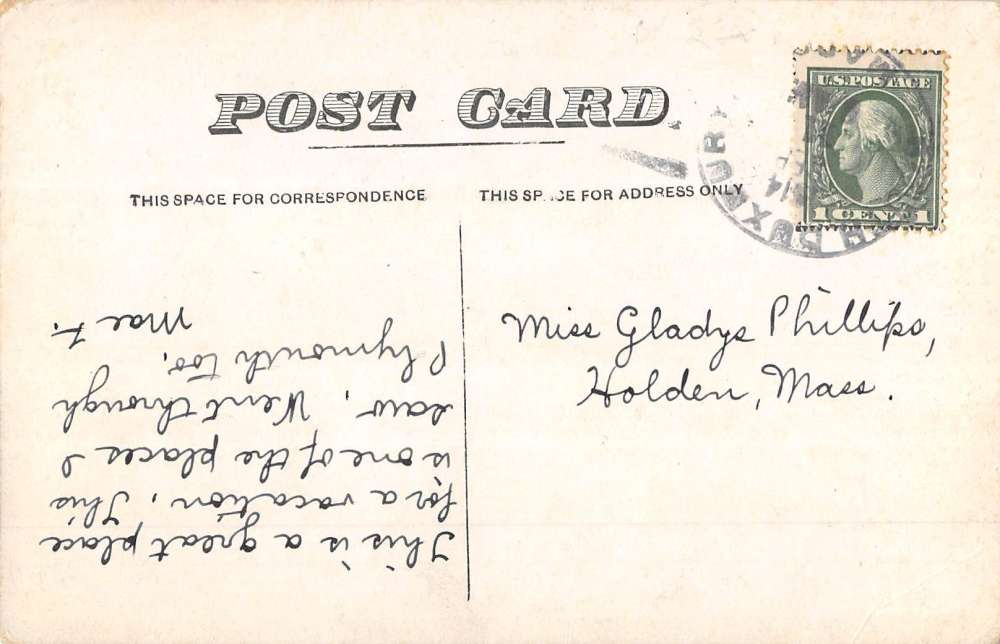 POST CARD
THIS SPACE FOR CORRESPONDENCE
THIS SPACE FOR ADDRESS ONLY
U.S. POSTAGE
1 CENT 1
H DUXBURY
14
Miss Gladys Phillips,
Holden, Mass.
This is a great place
for a vacation. This
is one of the places I
saw. Went through
Plymouth too.
Mae F.